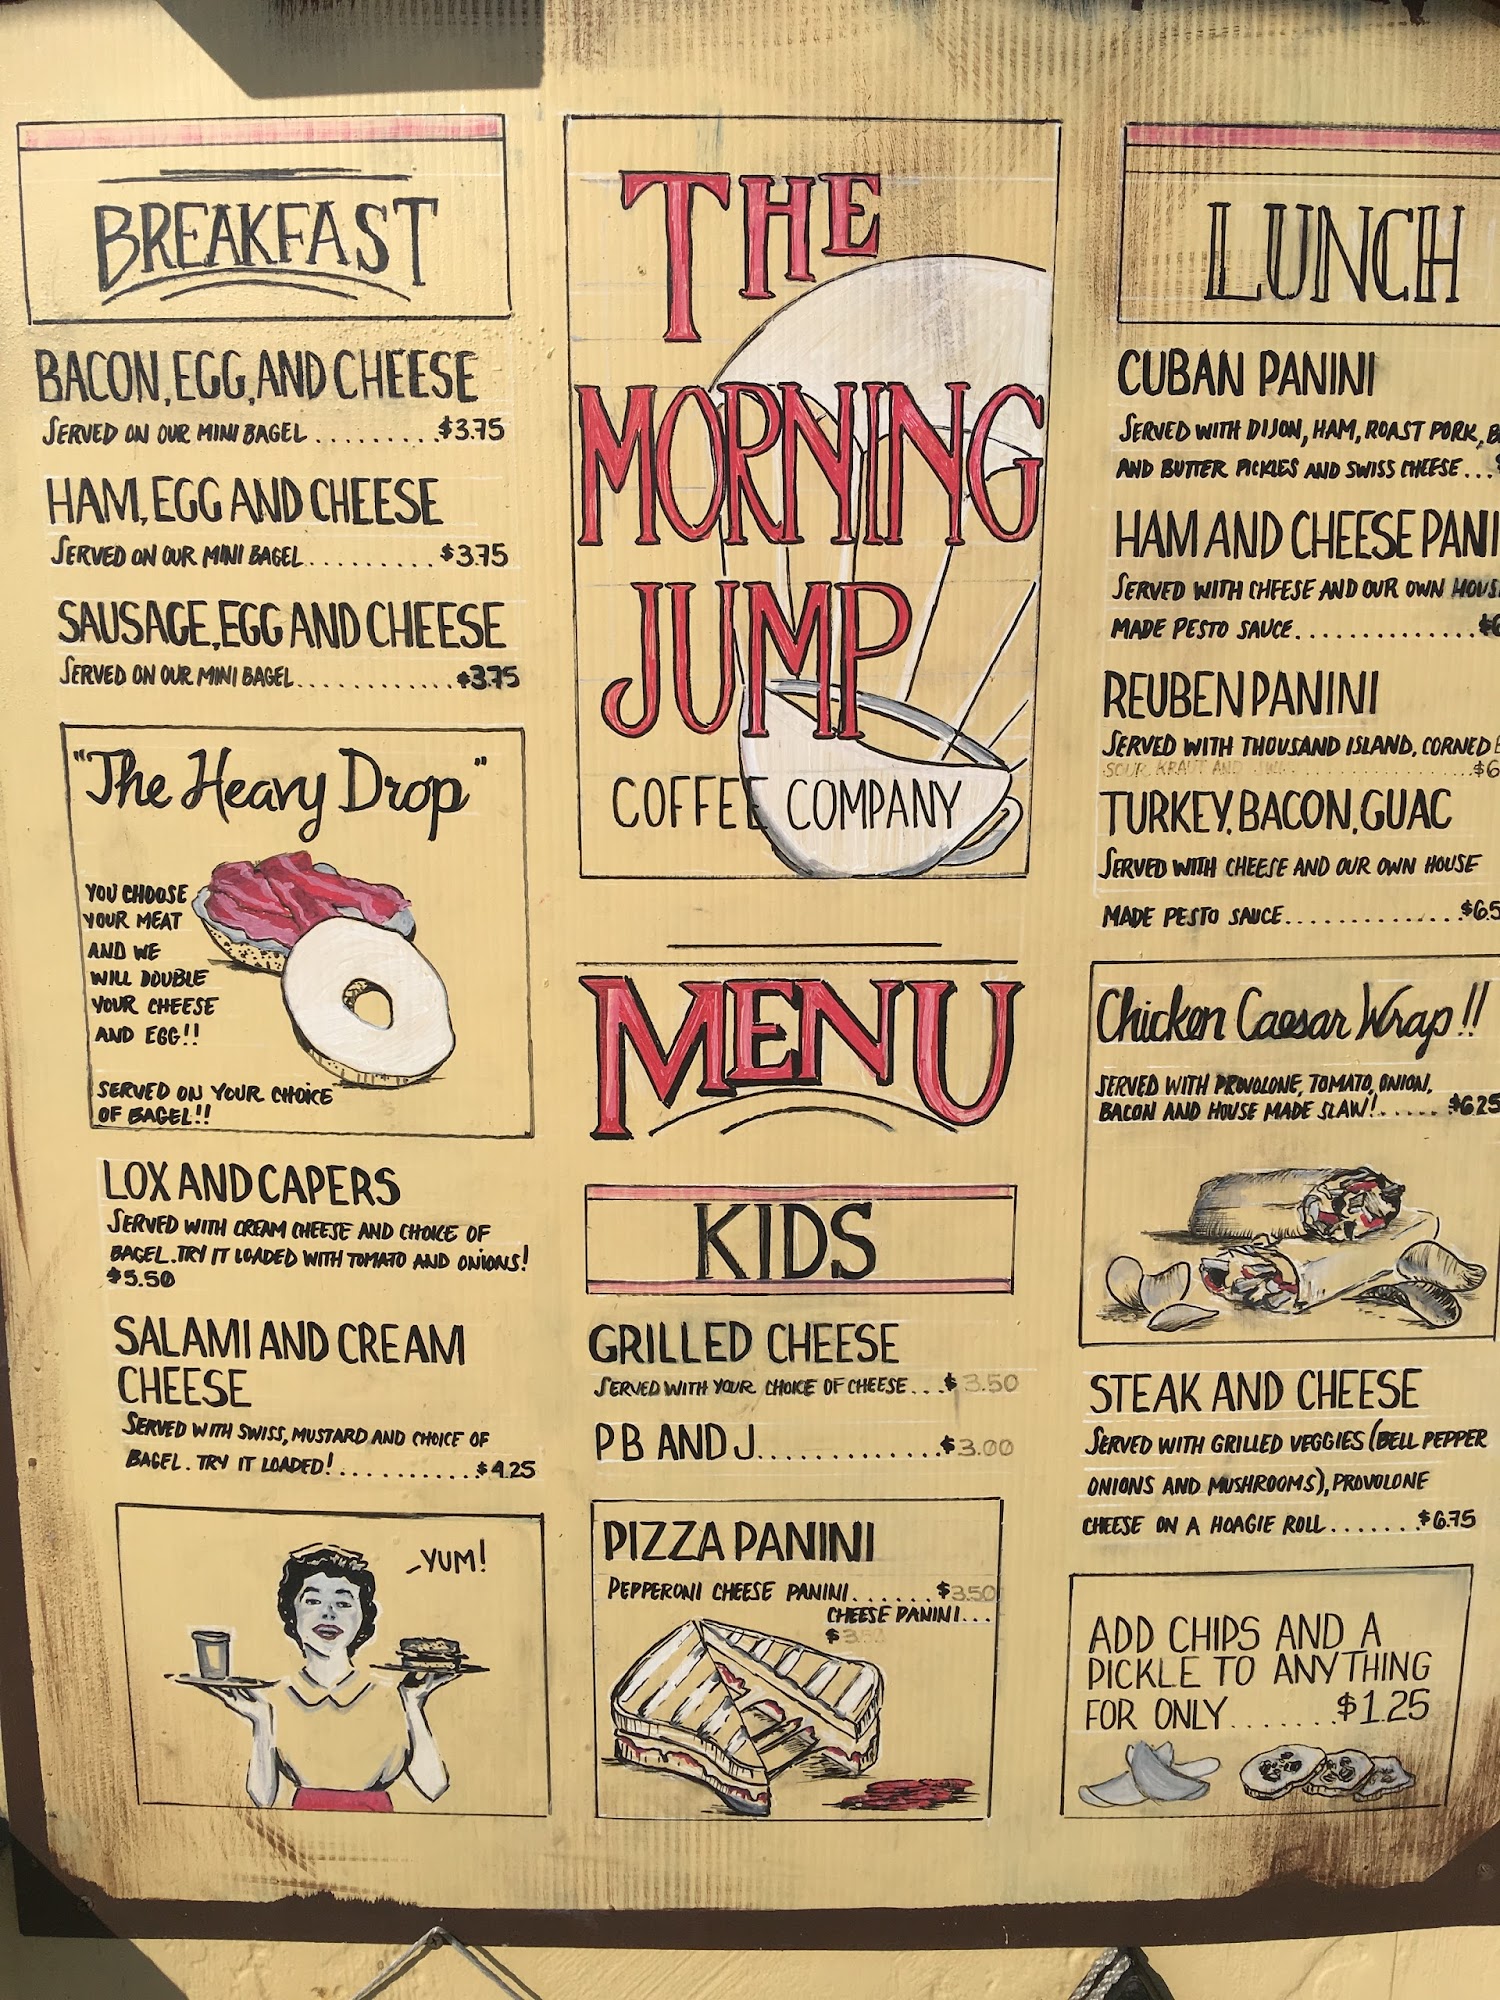 BREAKFAST
BACON, EGG, AND CHEESE
SERVED ON OUR MINI BAGEL.........$3.75
HAM, EGG AND CHEESE
SERVED ON OUR MINI BAGEL..........$3.75
SAUSAGE, EGG AND CHEESE
SERVED ON OUR MINI BAGEL............$3.75
"The Heavy Drop"
YOU CHOOSE
YOUR MEAT
AND WE
WILL DOUBLE
YOUR CHEESE
AND EGG!!
SERVED ON YOUR CHOICE
OF BAGEL!!
LOX AND CAPERS
SERVED WITH CREAM CHEESE AND CHOICE OF
BAGEL. TRY IT LOADED WITH TOMATO AND ONIONS!
$5.50
SALAMI AND CREAM
CHEESE
SERVED WITH SWISS, MUSTARD AND CHOICE OF
BAGEL. TRY IT LOADED!............$4.25
-YUM!
THE
MORNING
JUMP
COFFEE COMPANY
MENU
KIDS
GRILLED CHEESE
SERVED WITH YOUR CHOICE OF CHEESE...$3.50
PB AND J............$3.00
PIZZA PANINI
PEPPERONI CHEESE PANINI......$3.50
CHEESE PANINI...
LUNCH
CUBAN PANINI
SERVED WITH DIJON, HAM, ROAST PORK,
AND BUTTER PICKLES AND SWISS CHEESE...
HAM AND CHEESE PANI
SERVED WITH CHEESE AND OUR OWN HOUS
MADE PESTO SAUCE..............$6
REUBEN PANINI
SERVED WITH THOUSAND ISLAND, CORNED
SOUR KRAUT AND
$6
TURKEY, BACON, GUAC
SERVED WITH CHEESE AND OUR OWN HOUSE
MADE PESTO SAUCE.............$6.5
Chicken Caesar Wrap!!
SERVED WITH PROVOLONE, TOMATO, ONION,
BACON AND HOUSE MADE SLAW!......$6.25
STEAK AND CHEESE
SERVED WITH GRILLED VEGGIES (BELL PEPPER
ONIONS AND MUSHROOMS), PROVOLONE
CHEESE ON A HOAGIE ROLL.......$6.75
ADD CHIPS AND A
PICKLE TO ANYTHING
FOR ONLY.......$1.25